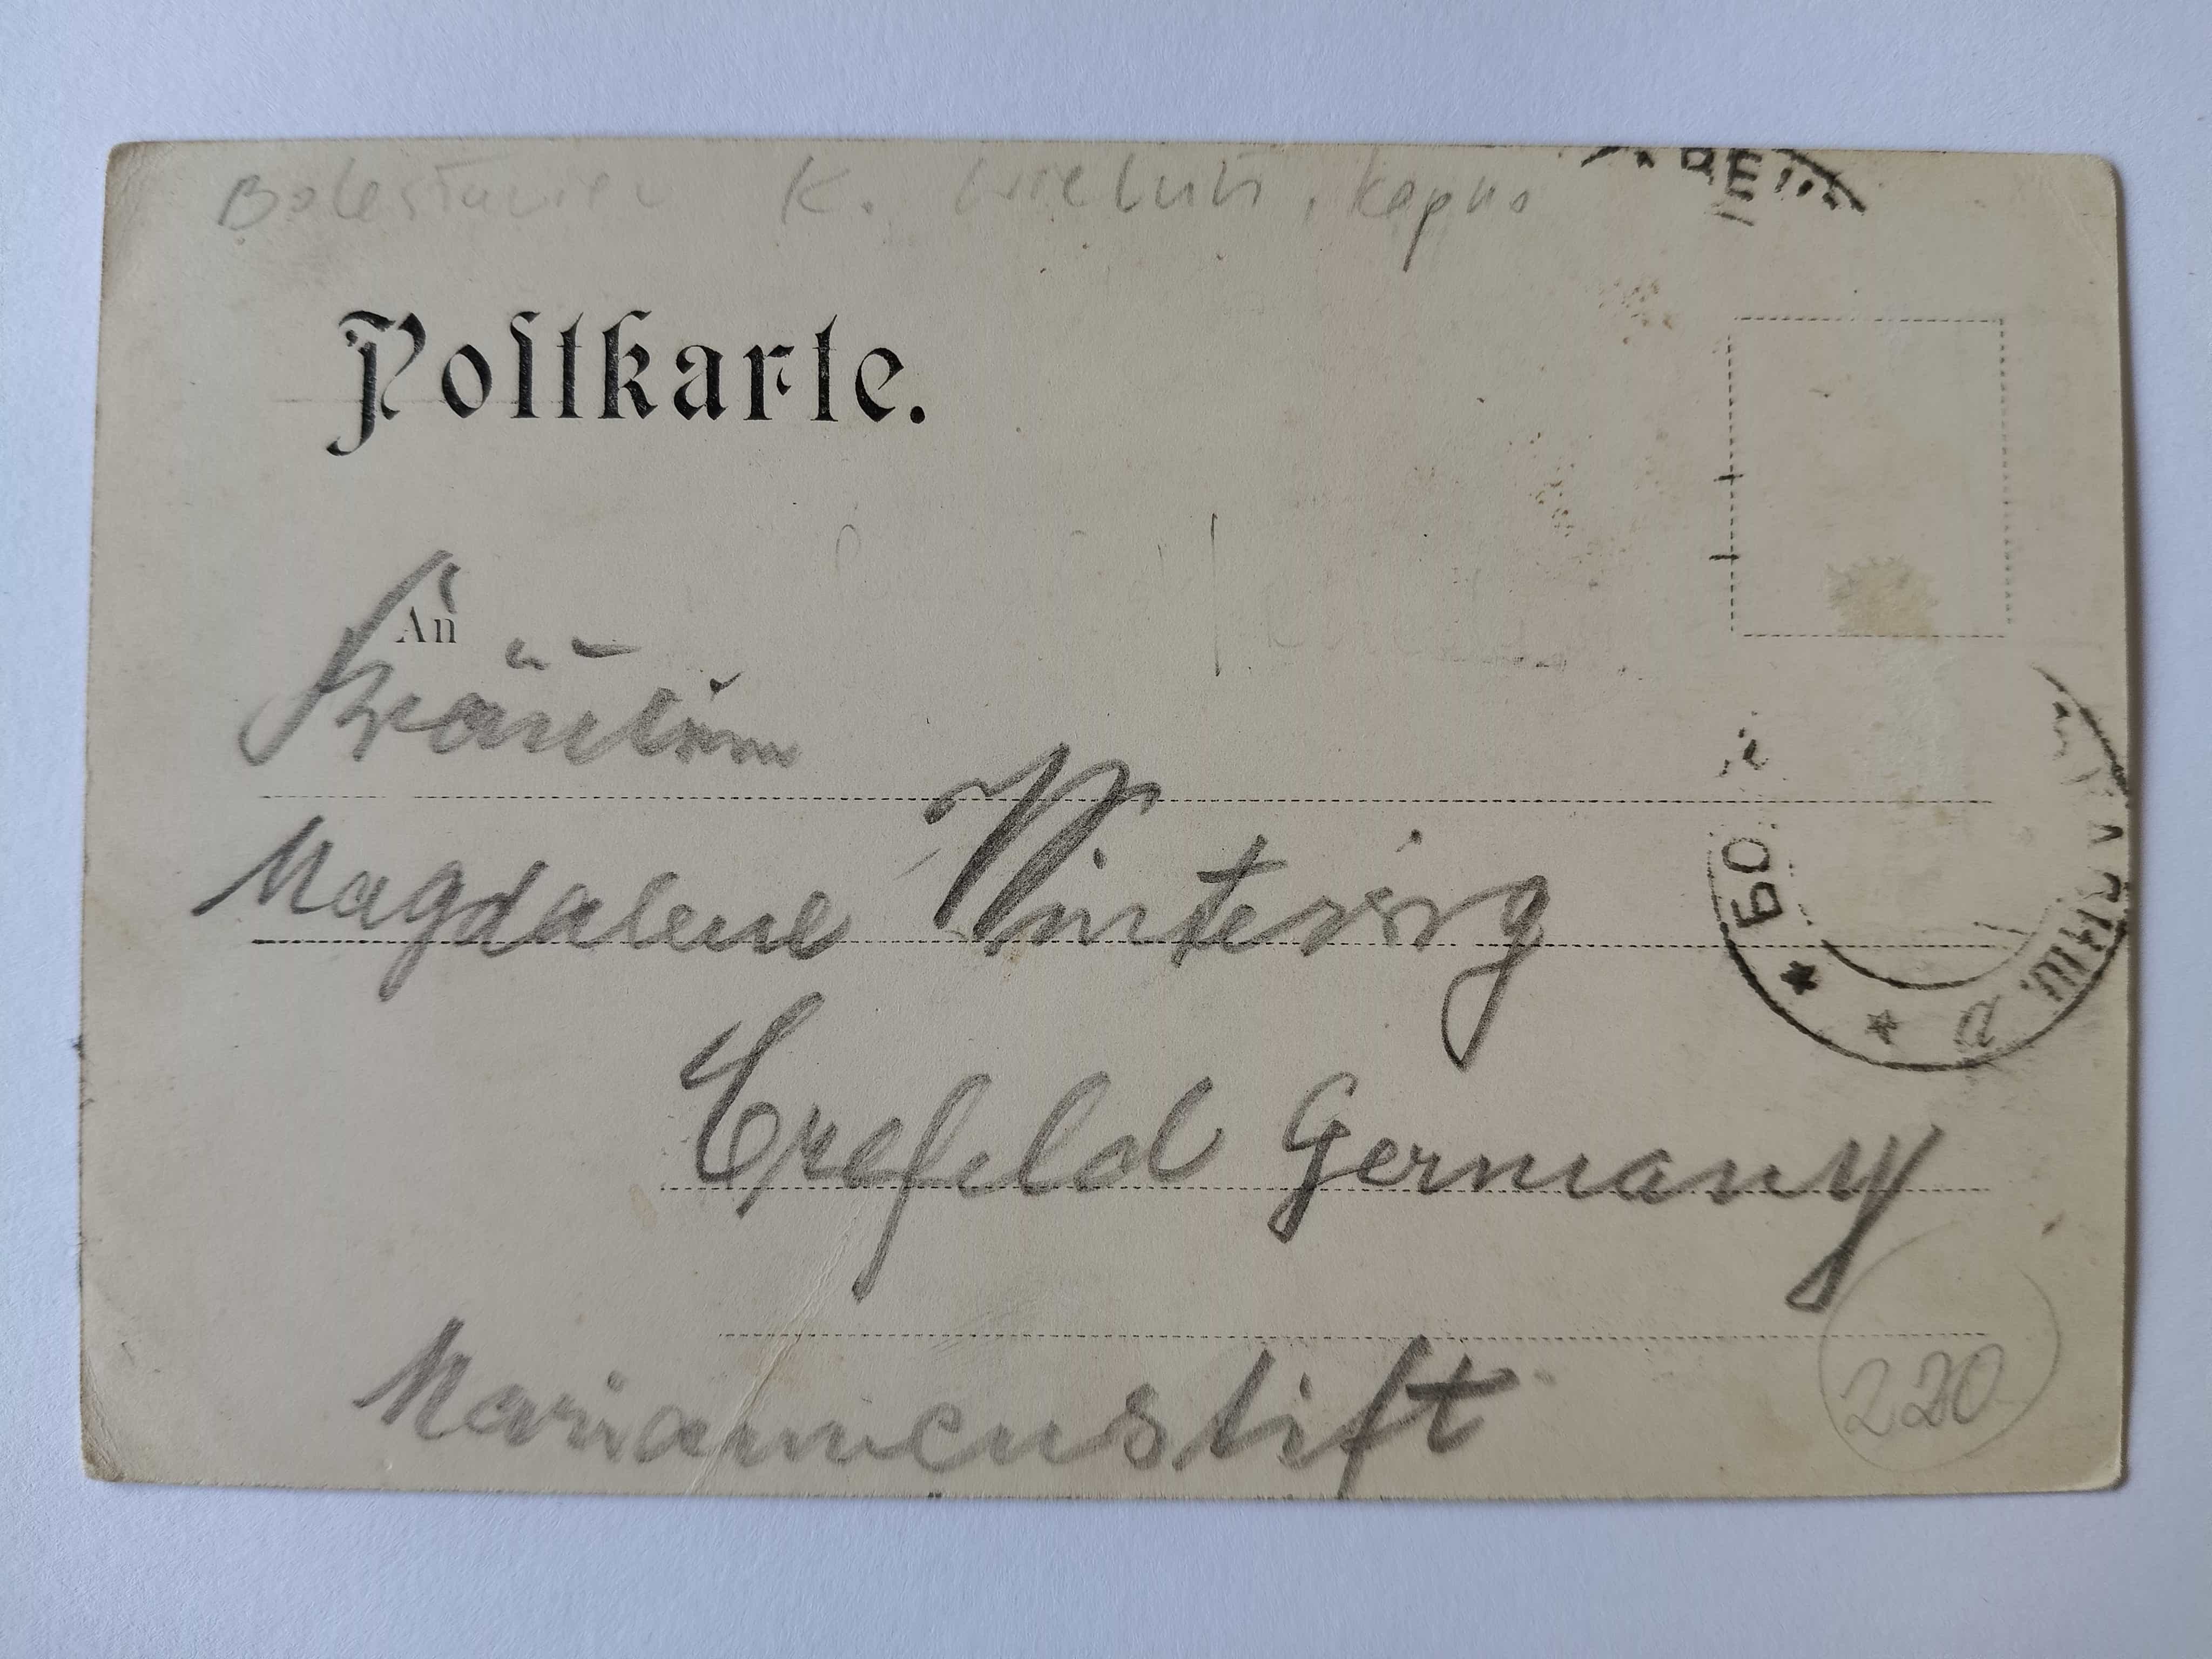 Bolesławiec K. Wielunia, Kępno
Postkarte.
An
Fräulein
Magdalene Wintersig
Crefeld Germany
Mariannenstift
220